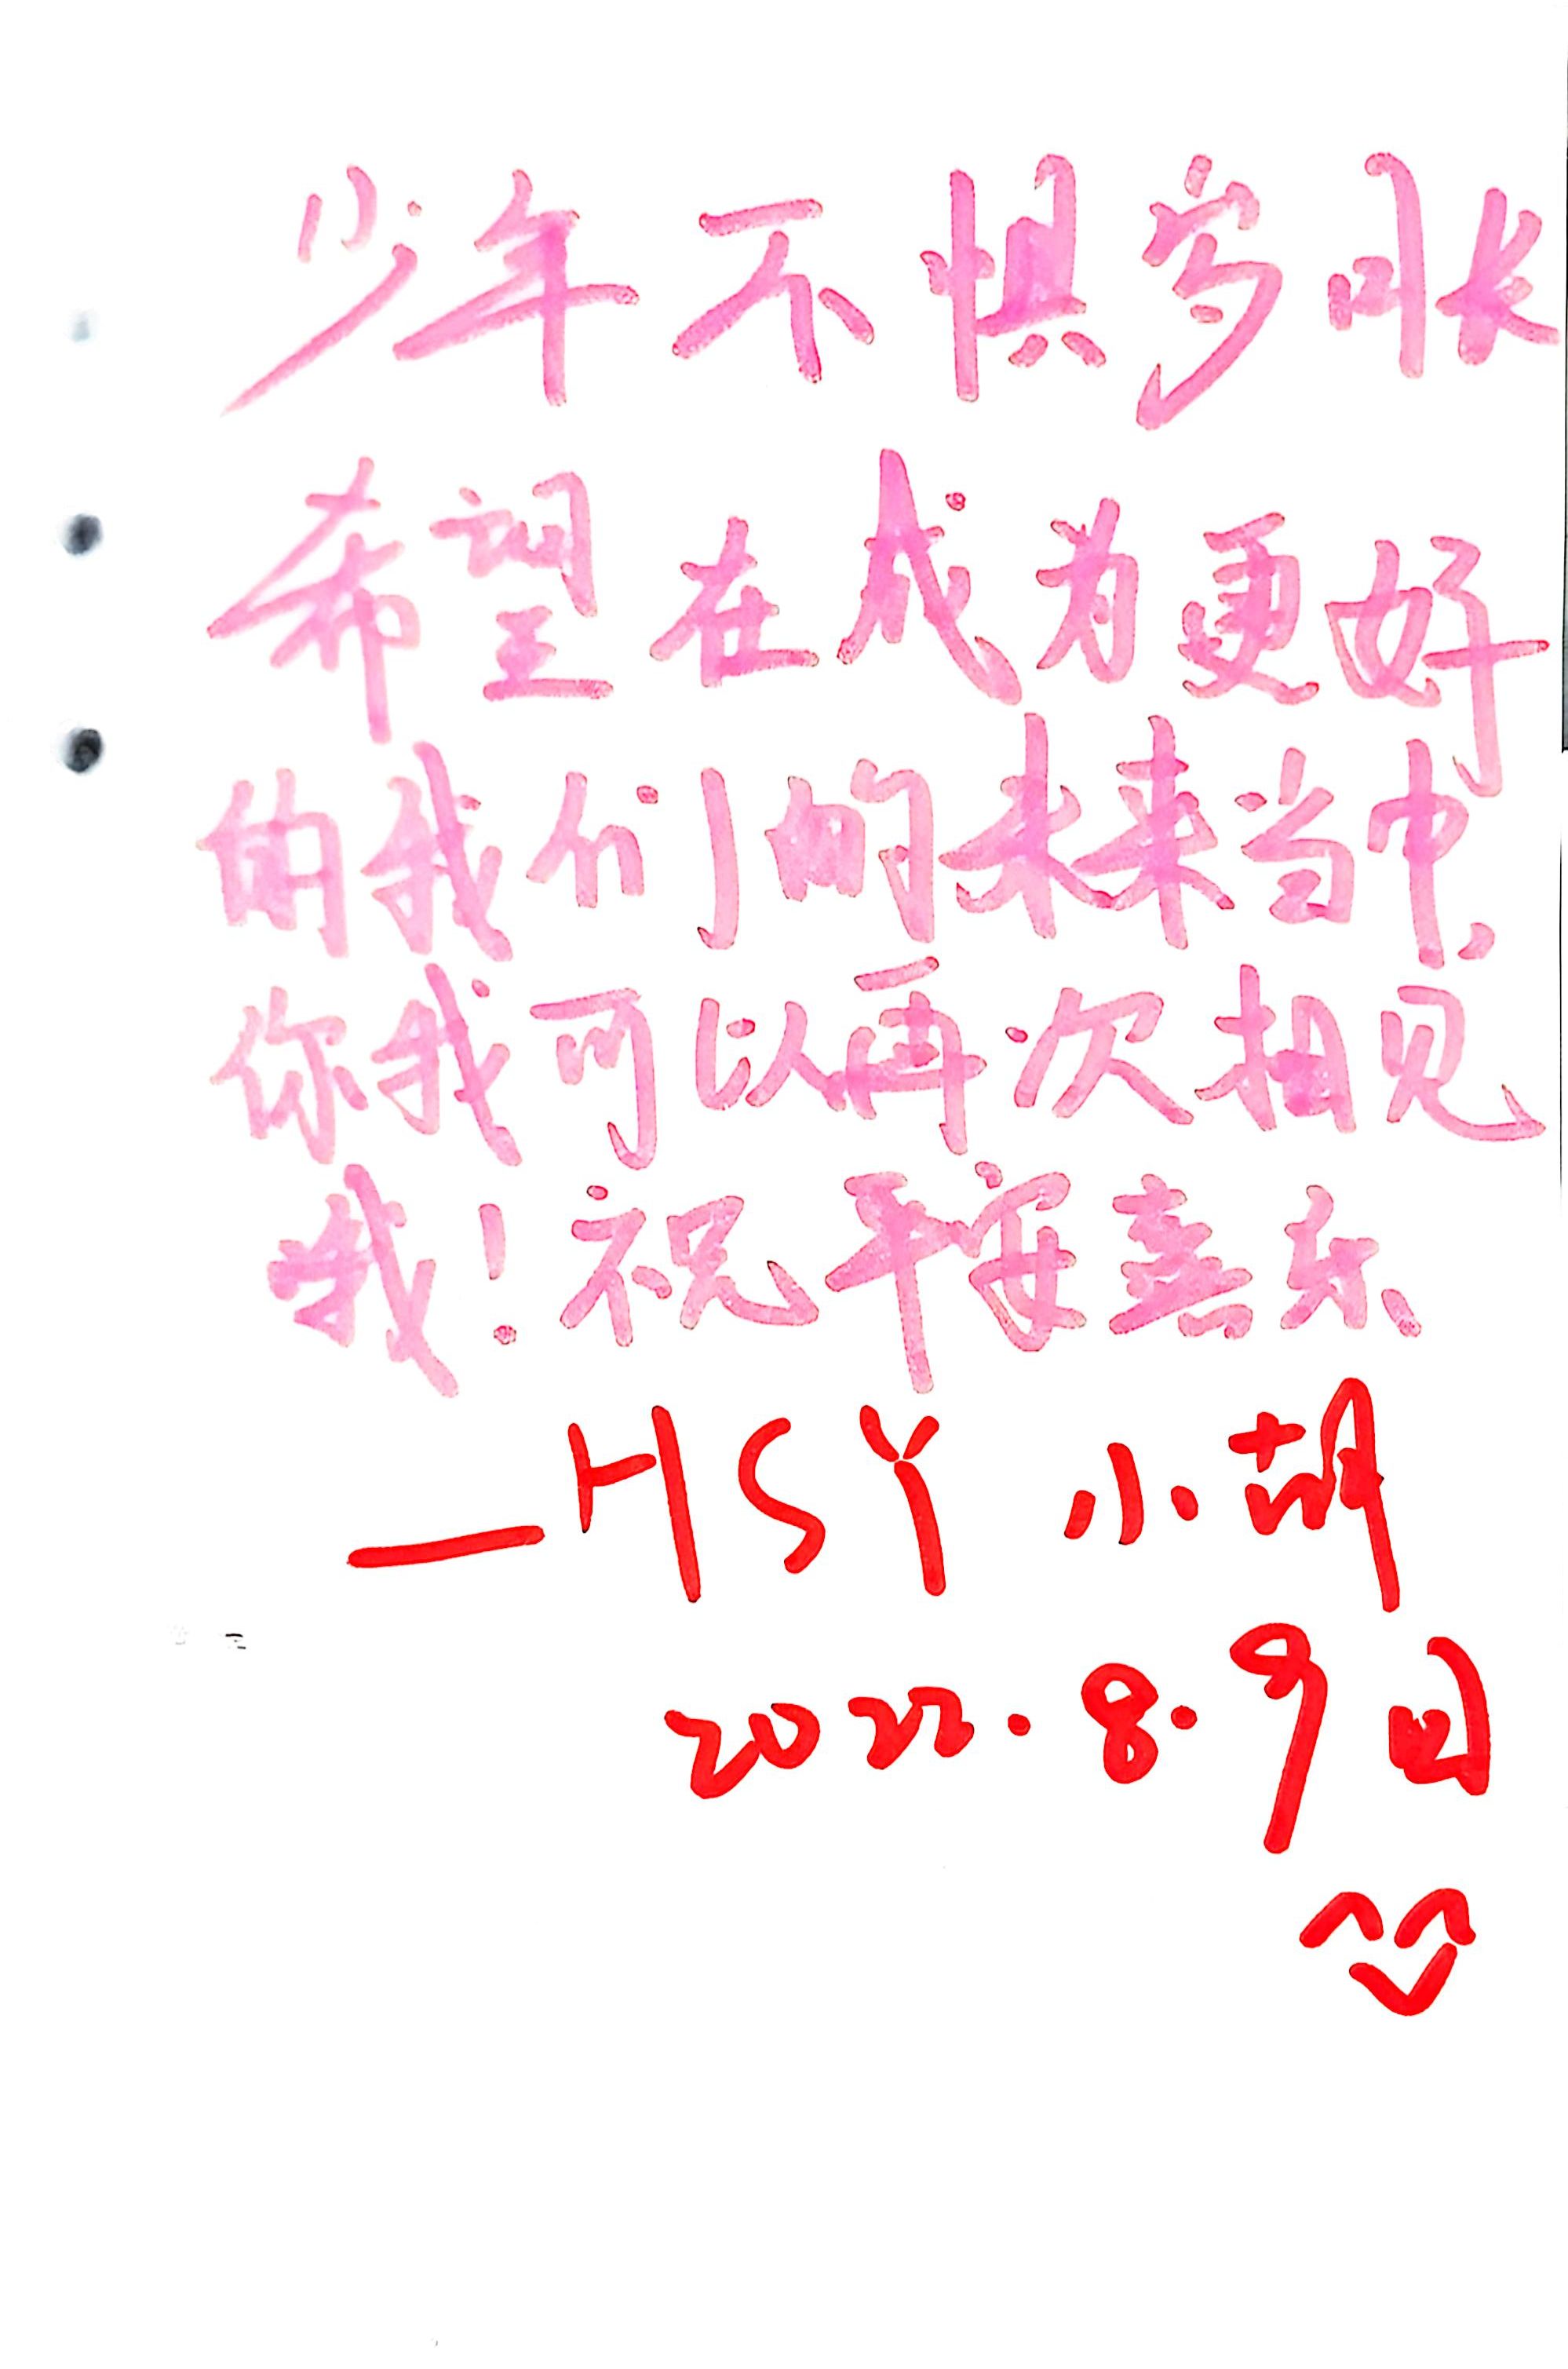 少年不惧岁月长
希望在成为更好
的我们的未来当中,
你我可以再次相见
哦!祝平安喜乐.
—HSY 小胡
2022.8.9日